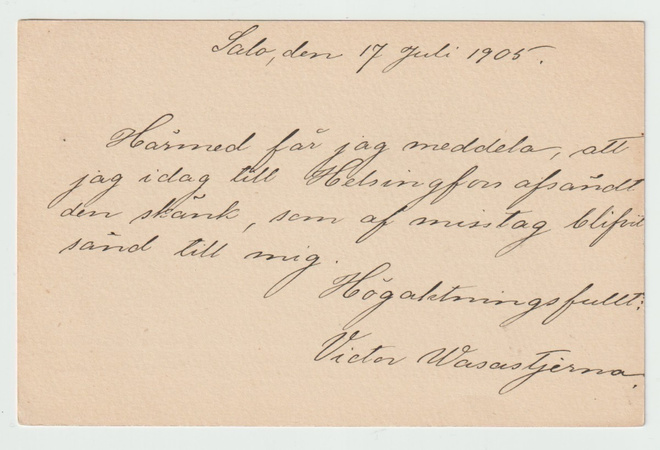 Salo, den 17 Juli 1905.
Härmed får jag meddela, att
jag idag till Helsingfors afsändt
den skänk, som af misstag blifvit
sänd till mig.
Högaktningsfullt:
Victor Wasastjerna.